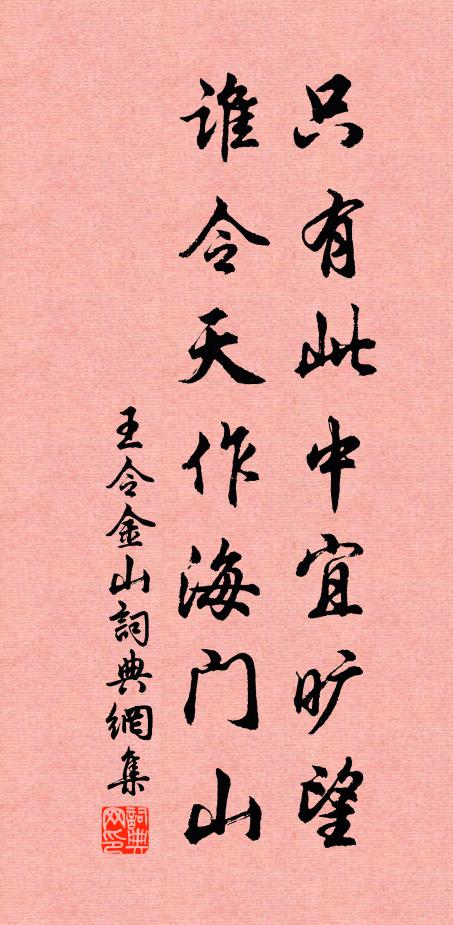 只有此中宜旷望
谁令天作海门山
王令金山詞典網集
詞典网印